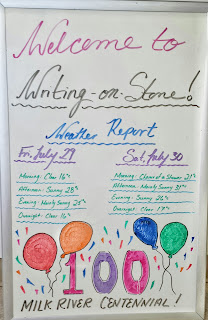 Welcome to
Writing-on-Stone!
Weather Report
Fri. July 29
Morning: Clear 16°c
Afternoon: Sunny 28°c
Evening: Mainly Sunny 25°c
Overnight: Clear 16°c
Sat. July 30
Morning: Chance of a Shower 21°c
Afternoon: Mainly Sunny 31°c
Evening: Sunny 26°c
Overnight: Clear 17°c
100
MILK RIVER CENTENNIAL!